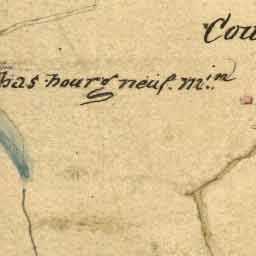 Cou
has bourg neuf. M.in